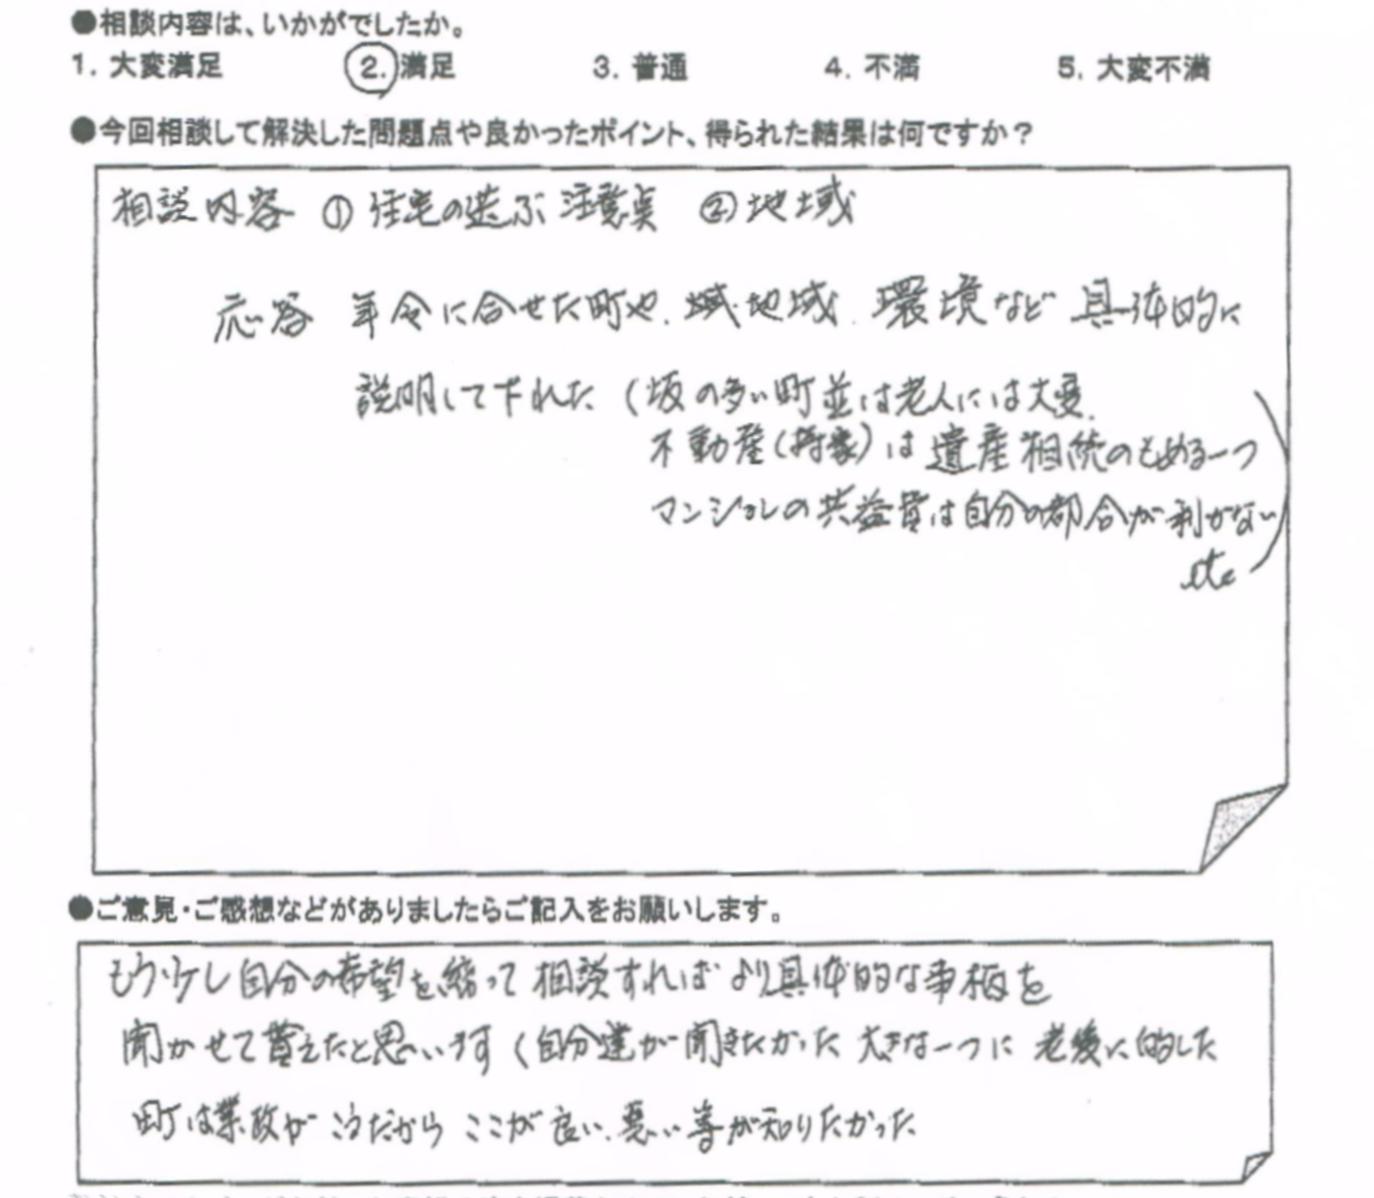 ●相談内容は、いかがでしたか。
1. 大変満足 2. 満足 3. 普通 4. 不満 5. 大変不満
●今回相談して解決した問題点や良かったポイント、得られた結果は何ですか？
相談内容 ① 住宅の選ぶ注意点 ② 地域
応答 年令に合せた町や、地域、環境など具体的に
説明して下れた (坂の多い町並は老人には大変、
不動産(持家)は遺産相続のもめる一つ
マンションの共益費は自分の都合が利かない
etc)
●ご意見・ご感想などがありましたらご記入をお願いします。
もう少し自分の希望を絞って相談すればより具体的な事柄を
聞かせて貰えたと思います (自分達が聞きたかった大きな一つに老後に的した
町は業政がこうだからここが良い、悪い等が知りたかった